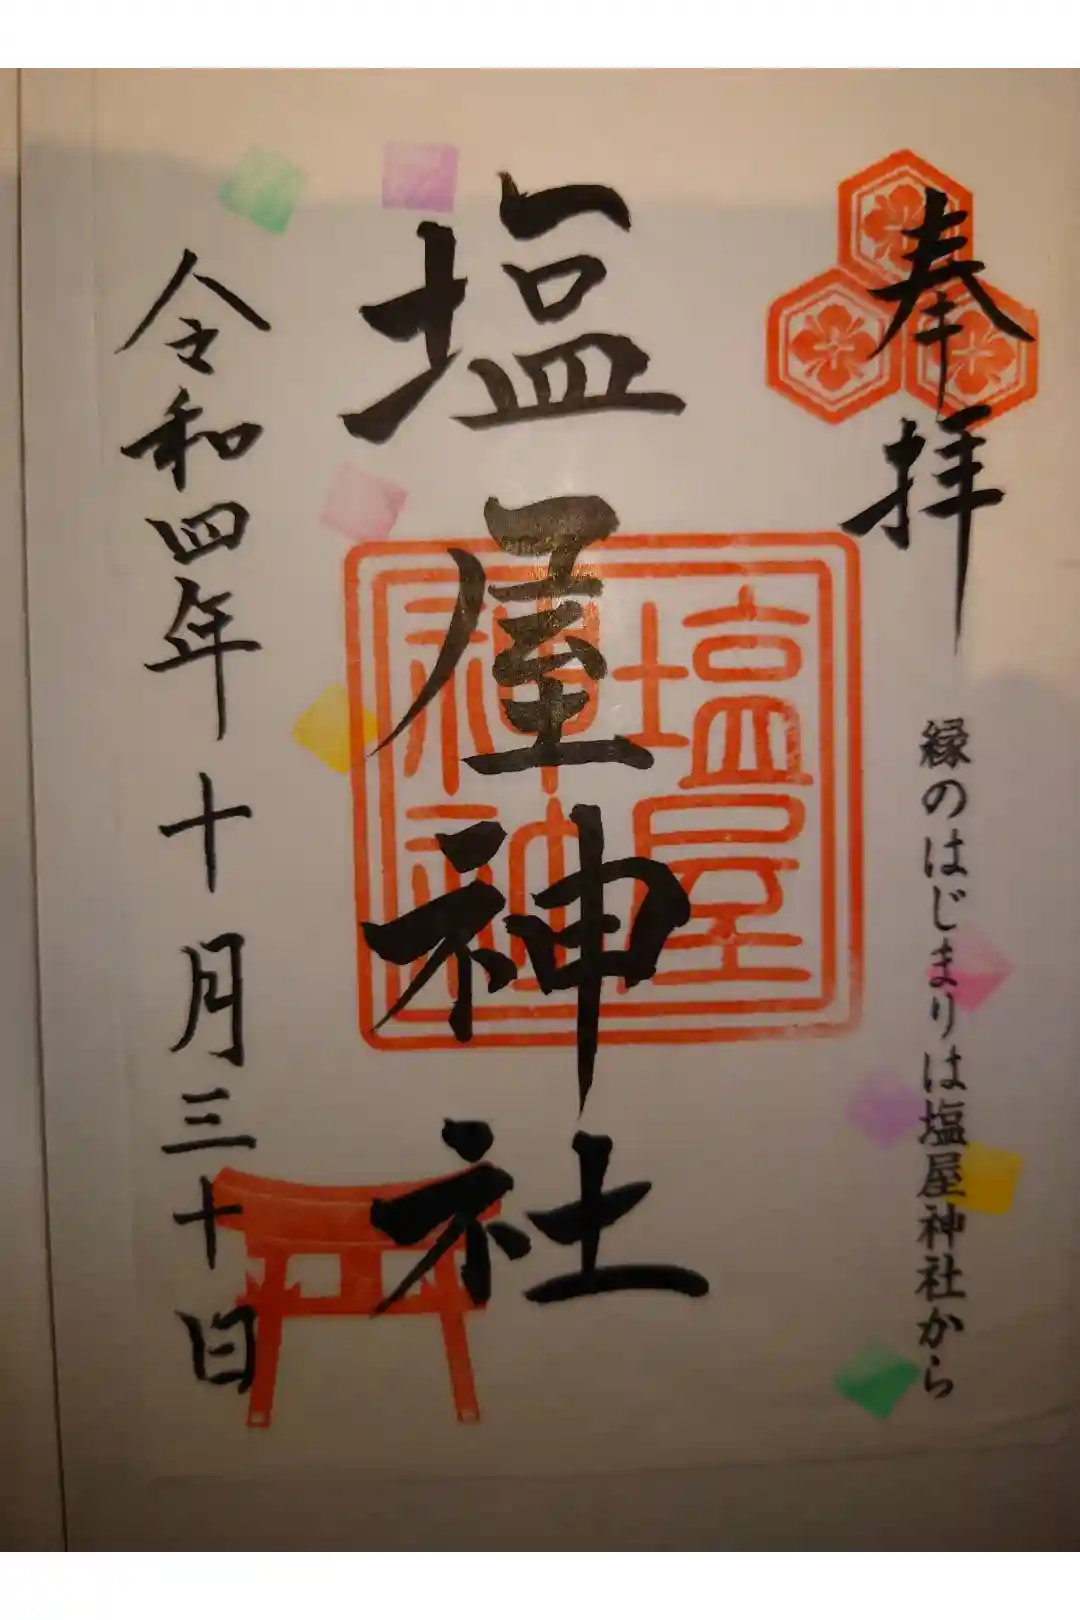 奉拝
縁のはじまりは塩屋神社から
塩屋神社
塩屋
神社
令和四年十月三十日